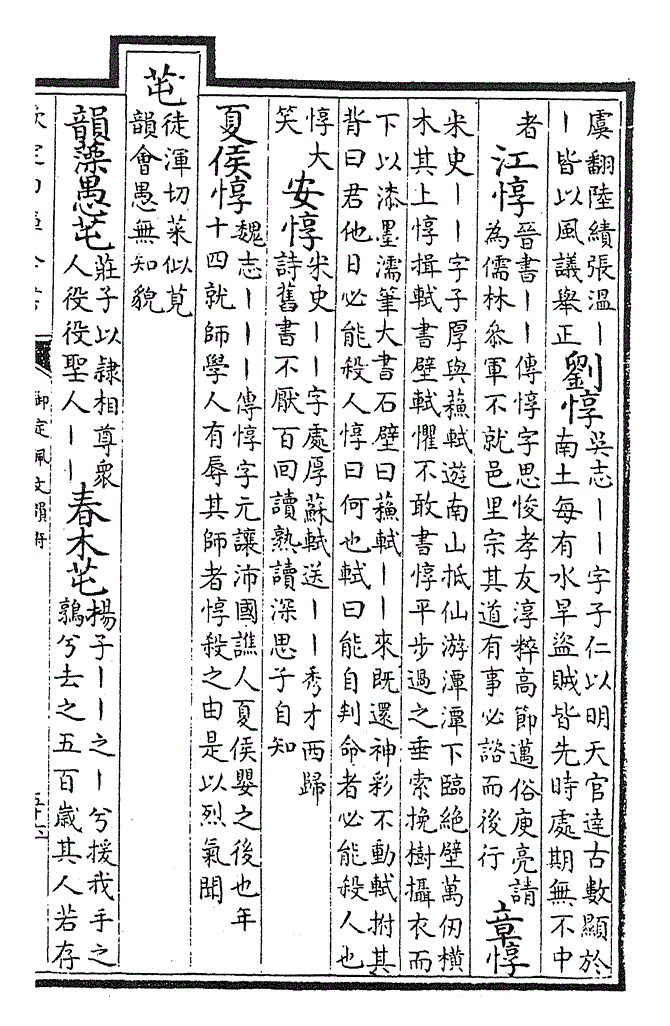 虞翻陸績張溫丨
丨皆以風議舉正
劉惇
吳志丨丨字子仁以明天官達古數顯於
南土每有水旱盜賊皆先時處期無不中
者
江惇
晉書丨丨傳惇字思悛孝友淳粹高節邁俗庾亮請
為儒林叅軍不就邑里宗其道有事必諮而後行
章惇
宋史丨丨字子厚與蘓軾遊南山抵仙游潭潭下臨絶壁萬仞橫
木其上惇揖軾書壁軾懼不敢書惇平步過之垂索挽樹攝衣而
下以漆墨濡筆大書石壁曰蘓軾丨丨來既還神彩不動軾拊其
背曰君他日必能殺人惇曰何也軾曰能自判命者必能殺人也
惇大
笑
安惇
宋史丨丨字處厚蘇軾送丨丨秀才西歸
詩舊書不厭百回讀熟讀深思子自知
夏侯惇
魏志丨丨丨傳惇字元讓沛國譙人夏侯嬰之後也年
十四就師學人有辱其師者惇殺之由是以烈氣聞
芚
徒渾切菜似莧
韻會愚無知貌
韻藻愚芚
莊子以隸相尊衆
人役役聖人丨丨
春木芚
楊子丨丨之丨兮援我手之
鶉兮去之五百歲其人若存
御定佩文韻府